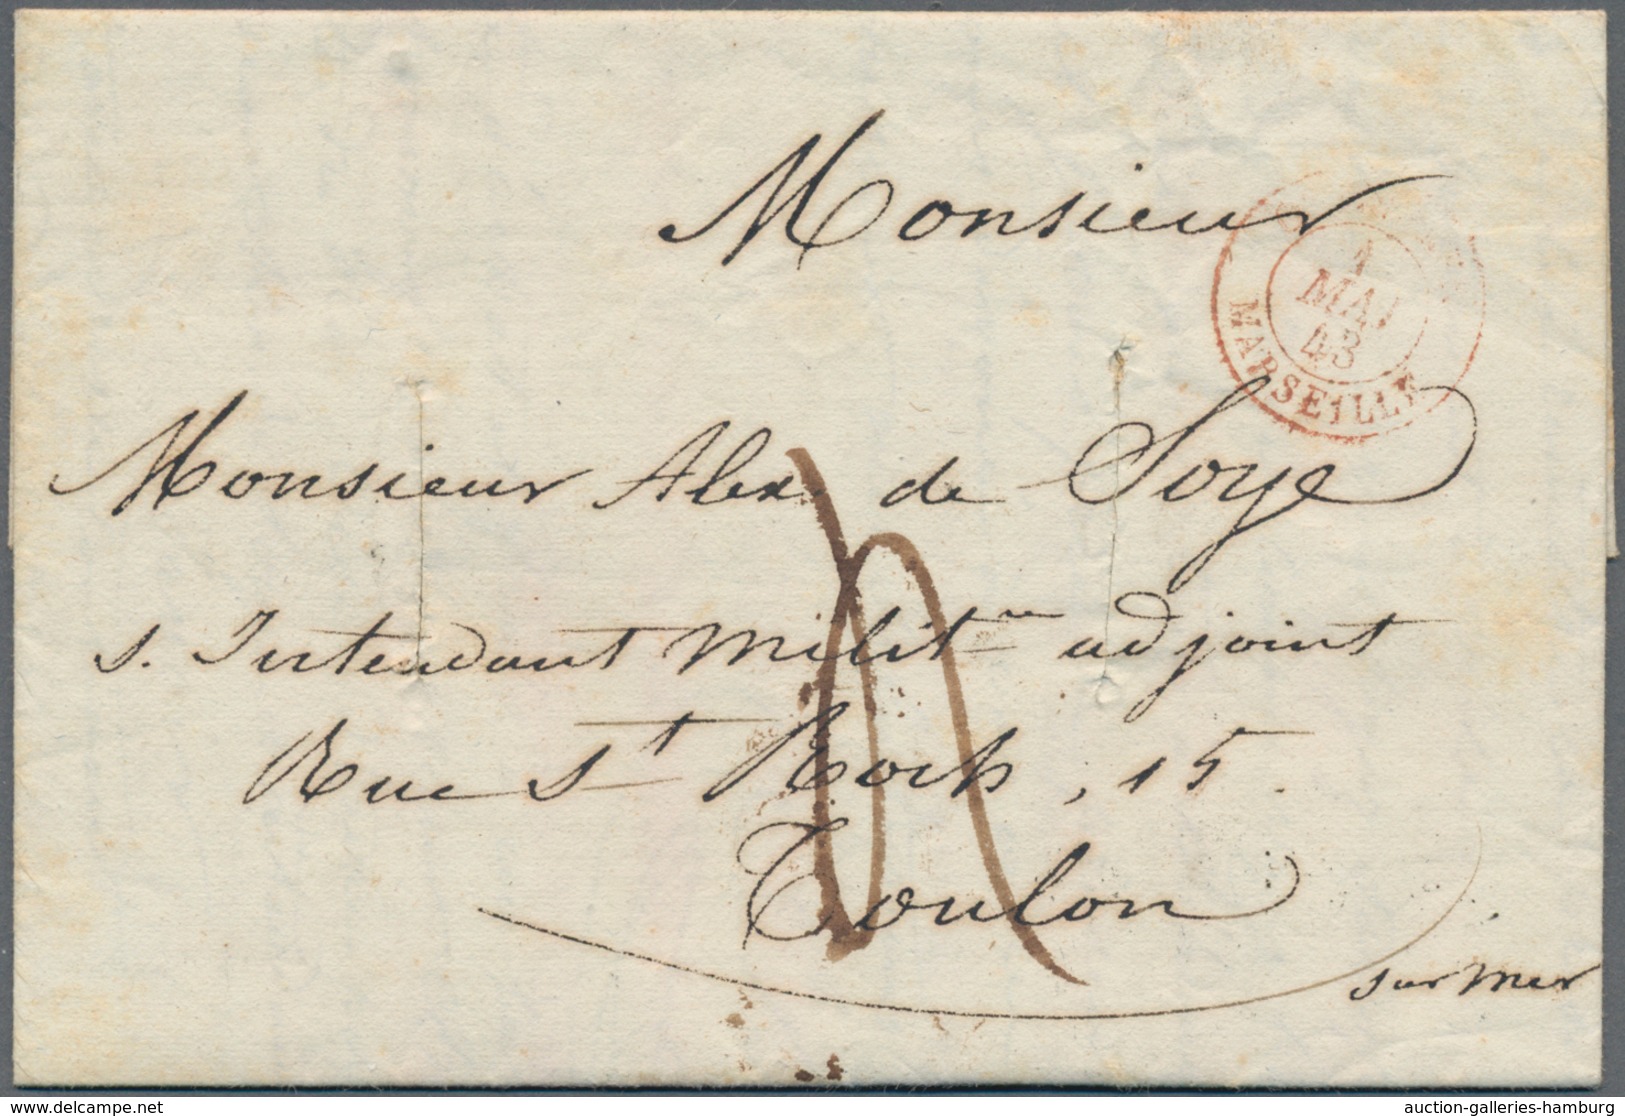 Monsieur
1
MAI
43
MARSEILLE
Monsieur Alex de Soye
s. Intendant milit.re adjoint
Rue St Roch, 15.
Toulon
sur mer
delcampe.net
auction-galleries-hamburg